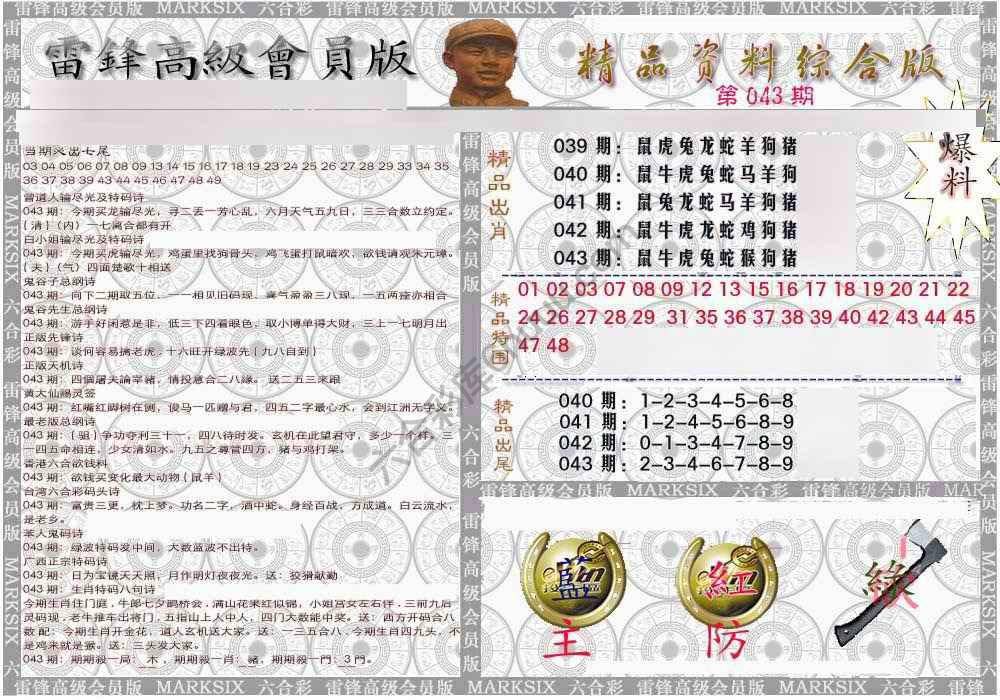 雷锋高级会员版 MARKSIX 六合彩 雷锋高级会员版 MARKSIX 六合彩 雷锋高级会员版 MARKSIX 六合彩
雷鋒高級會員版
精品资料综合版
第 043 期
爆料
当期突出七尾
03 04 05 06 07 08 09 13 14 15 16 17 18 19 23 24 25 26 27 28 29 33 34 35
36 37 38 39 43 44 45 46 47 48 49
曾道人输尽光及特码诗
043 期：今期买龙输尽光，寻二丢一芳心乱，六月天气五九日，三三合数立约定。
{清}（内）一七离合都有开
白小姐输尽光及特码诗
043 期：今期买虎输尽光，鸡蛋里找狗骨头，鸡飞蛋打鼠暗欢，欲钱请观朱元璋。
{夫}（气）四面楚歌十相送
鬼谷子总纲诗
043 期：向下二期取五位，一一相见旧码现，喜气盈盈三八现，一五两座亦相合
鬼谷先生总纲诗
043 期：游手好闲惹是非，低三下四看眼色，取小博单得大财，三上一七明月出
正版先锋诗
043 期：谈何容易擒老虎，十六旺开绿波先{九八自到}
正版天机诗
043 期：四個屠夫論宰豬，情投意合二八緣。送二五三来跟
黄大仙赐灵签
043 期：红嘴红脚树在侧，俊马一匹赠与君，四五二字最心水，会到江洲无字义。
最老版总纲诗
043 期：{狙}争功夺利三十一，四八待时发。玄机在此望君守，多少一个样。三
一四五命相连，少女清如水。九五之尊管四方，猪与鸡打架。
香港六合欲钱料
043 期：欲钱买变化最大动物{鼠羊}
台湾六合彩码头诗
043 期：富贵三更，枕上梦。功名二字，酒中蛇。身经百战，方成道。白云流水，
是老乡。
苯人鬼码诗
043 期：绿波特码发中间，大数蓝波不出特。
广西正宗特码诗
043 期：日为宝镜天天照，月作明灯夜夜光。送：狡猾献勤
043 期：生肖特码八句诗
今期生肖住门庭，牛郎七夕鹊桥会，满山花果红似锦，小姐宫女左右伴，三前九后
灵码现，老牛推车出将门，五指山上人中人，四门大数能中奖。送：西方开码合八
数 配：今期生肖开金花，道人玄机送大家。送：一三五合八，今期生肖四九头，不
是鸡来就是猴。送：三头发大家。
043 期：期期殺一局：木，期期殺一肖：豬，期期殺一門：3 門。
精品出肖
039 期：鼠虎兔龙蛇羊狗猪
040 期：鼠牛虎兔蛇马羊狗
041 期：鼠兔龙蛇马羊狗猪
042 期：鼠虎龙龙蛇鸡狗猪
043 期：鼠牛虎兔蛇猴狗猪
精品特围
01 02 03 07 08 09 12 13 15 16 17 18 19 20 21 22
24 26 27 28 29 31 35 36 37 38 39 40 42 43 44 45
47 48
精品出尾
040 期：1-2-3-4-5-6-8
041 期：1-2-4-5-6-8-9
042 期：0-1-3-4-7-8-9
043 期：2-3-4-6-7-8-9
雷锋高级会员版 MARKSIX 六合彩 雷锋高级会员版 MARK
藍 紅 綠
主 防
雷锋高级会员版 MARKSIX 六合彩 雷锋高级会员版 MARKSIX 六合彩 雷锋高级会员版 MARKSIX 六合彩